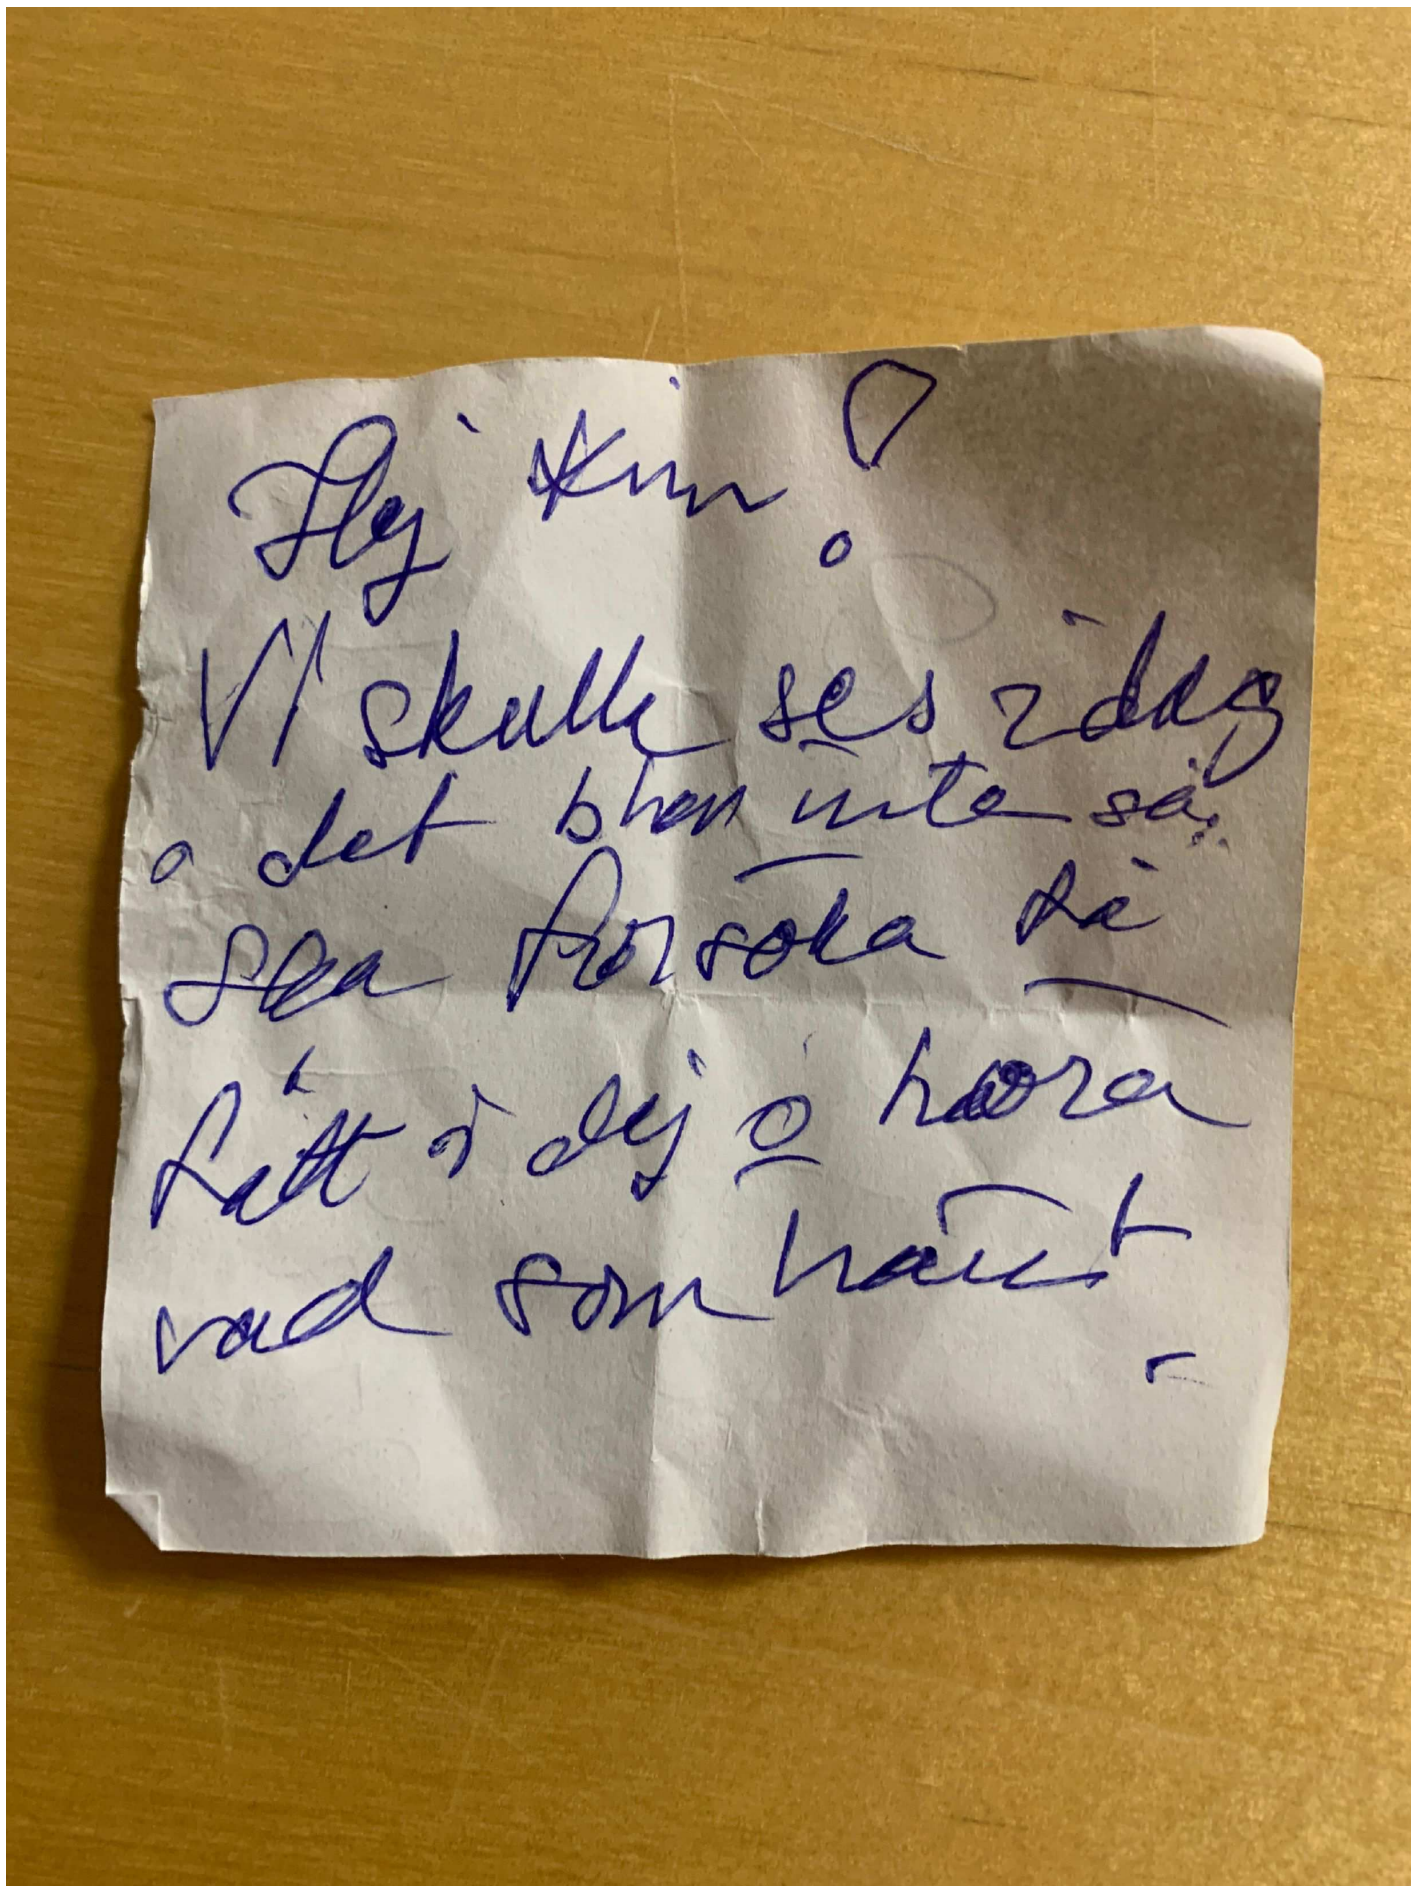 Hej Kim!
Vi skulle ses idag
o det blev inte så.
Ska försöka få
tätt i dej o höra
vad som hänt